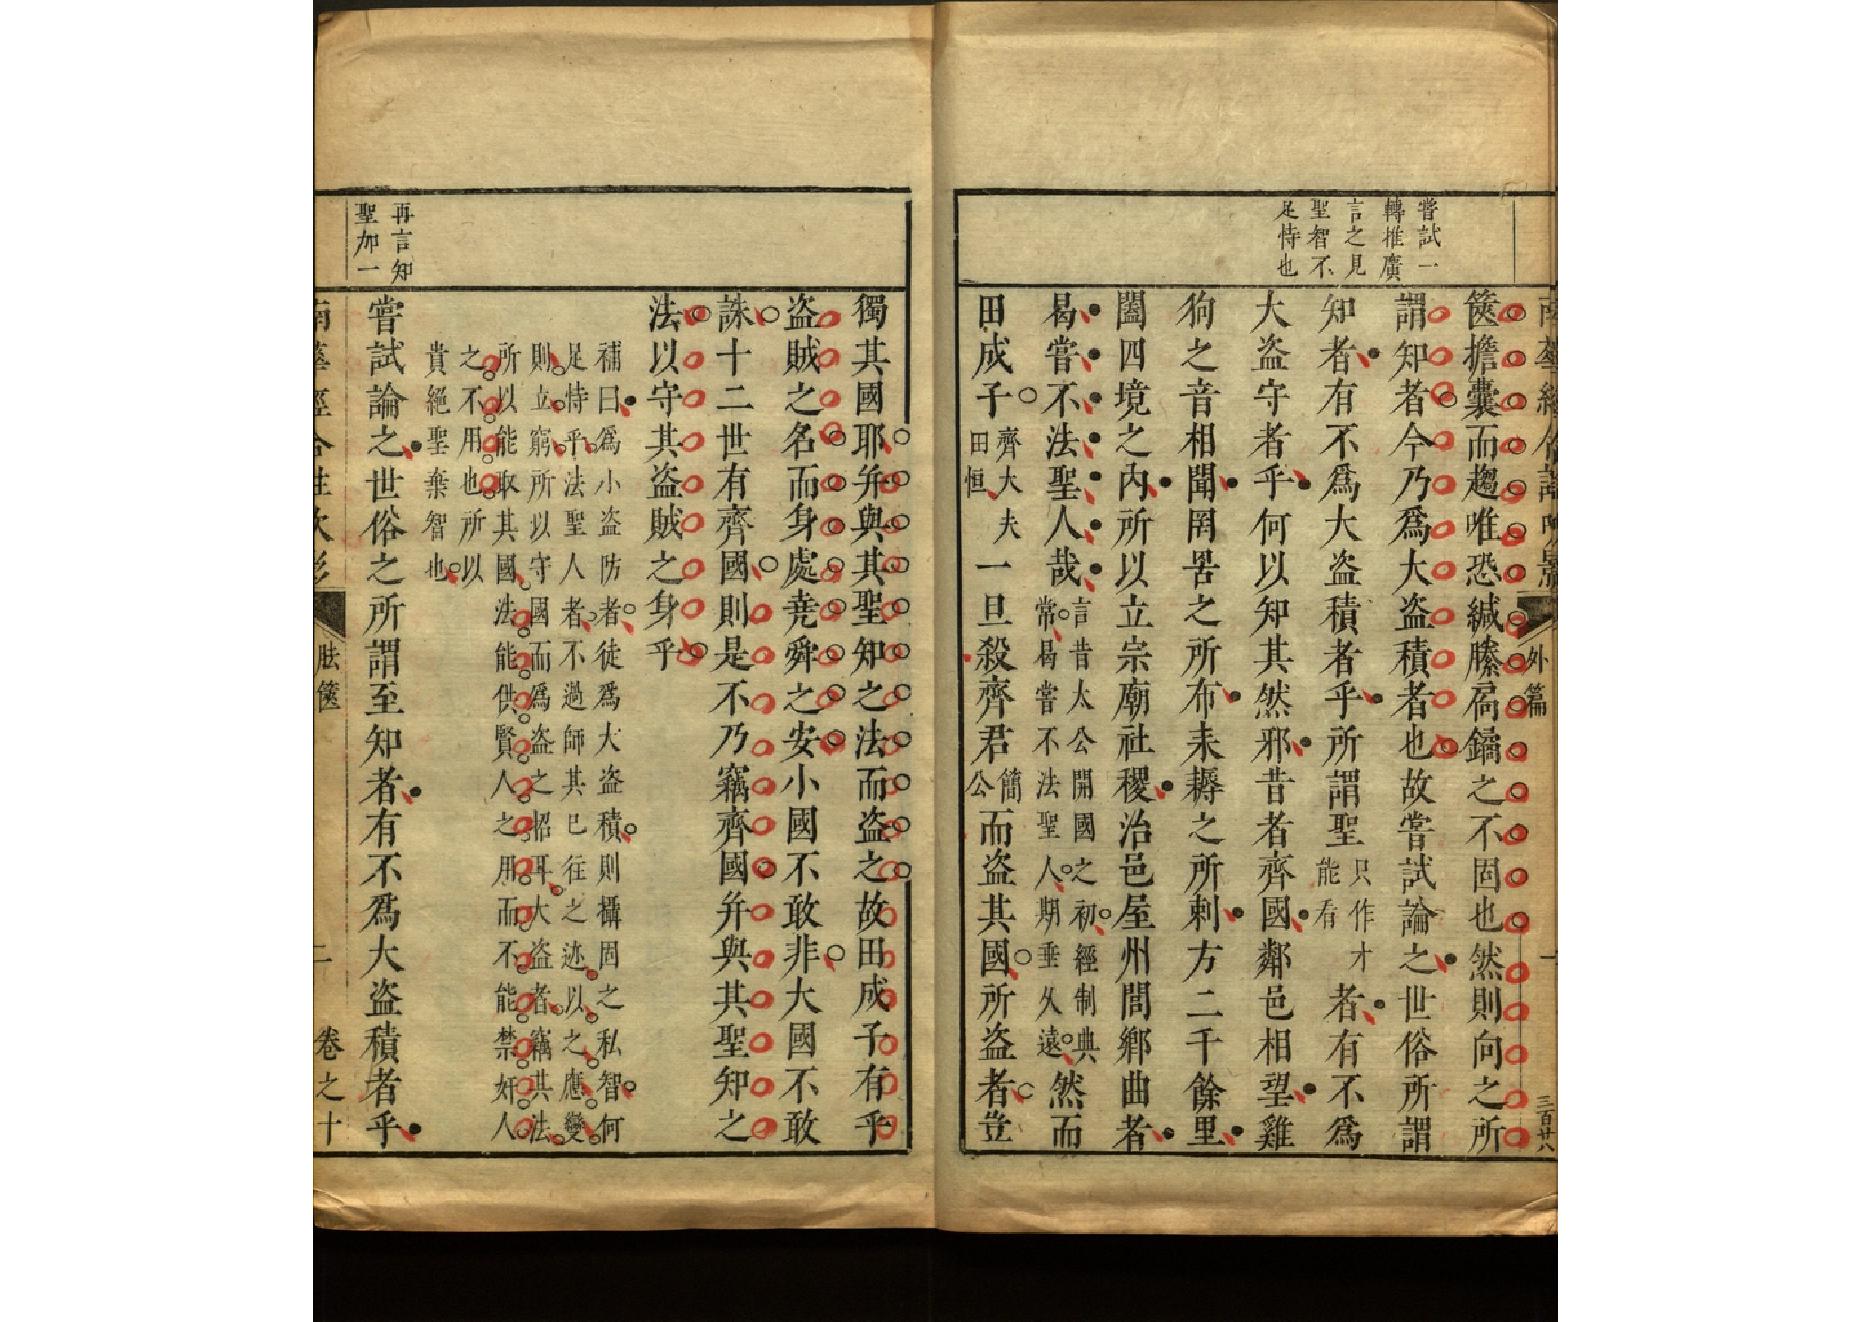 嘗試一
轉推廣
言之見
聖智不
足恃也
篋擔囊而趨唯恐緘縢扃鐍之不固也然則向之所
謂知者今乃爲大盗積者也故嘗試論之世俗所謂
知者有不爲大盗積者乎所謂聖
只作才
能看
者有不爲
大盗守者乎何以知其然邪昔者齊國鄰邑相望雞
狗之音相聞罔罟之所布耒耨之所刺方二千餘里
闔四境之內所以立宗廟社稷治邑屋州閭鄉曲者
曷嘗不法聖人哉
言昔太公開國之初經制典
常曷嘗不法聖人期垂久遠
然而
田成子
齊大夫
田恒
一旦殺齊君
簡
公
而盗其國所盗者豈
外篇
一
三百廿八
獨其國耶幷與其聖知之法而盗之故田成子有乎
盗賊之名而身處堯舜之安小國不敢非大國不敢
誅十二世有齊國則是不乃竊齊國幷與其聖知之
法以守其盗賊之身乎
補曰爲小盗防者徒爲大盗積則攝固之私智何
足恃乎法聖人者不過師其已往之迹以之應變
則立窮所以守國而爲盗之招耳大盗者竊其法
所以能取其國法能供賢人之用而不能禁奸人
之不用也所以
貴絕聖棄智也
再言知
聖加一
嘗試論之世俗之所謂至知者有不爲大盗積者乎
胠篋
二
卷之十